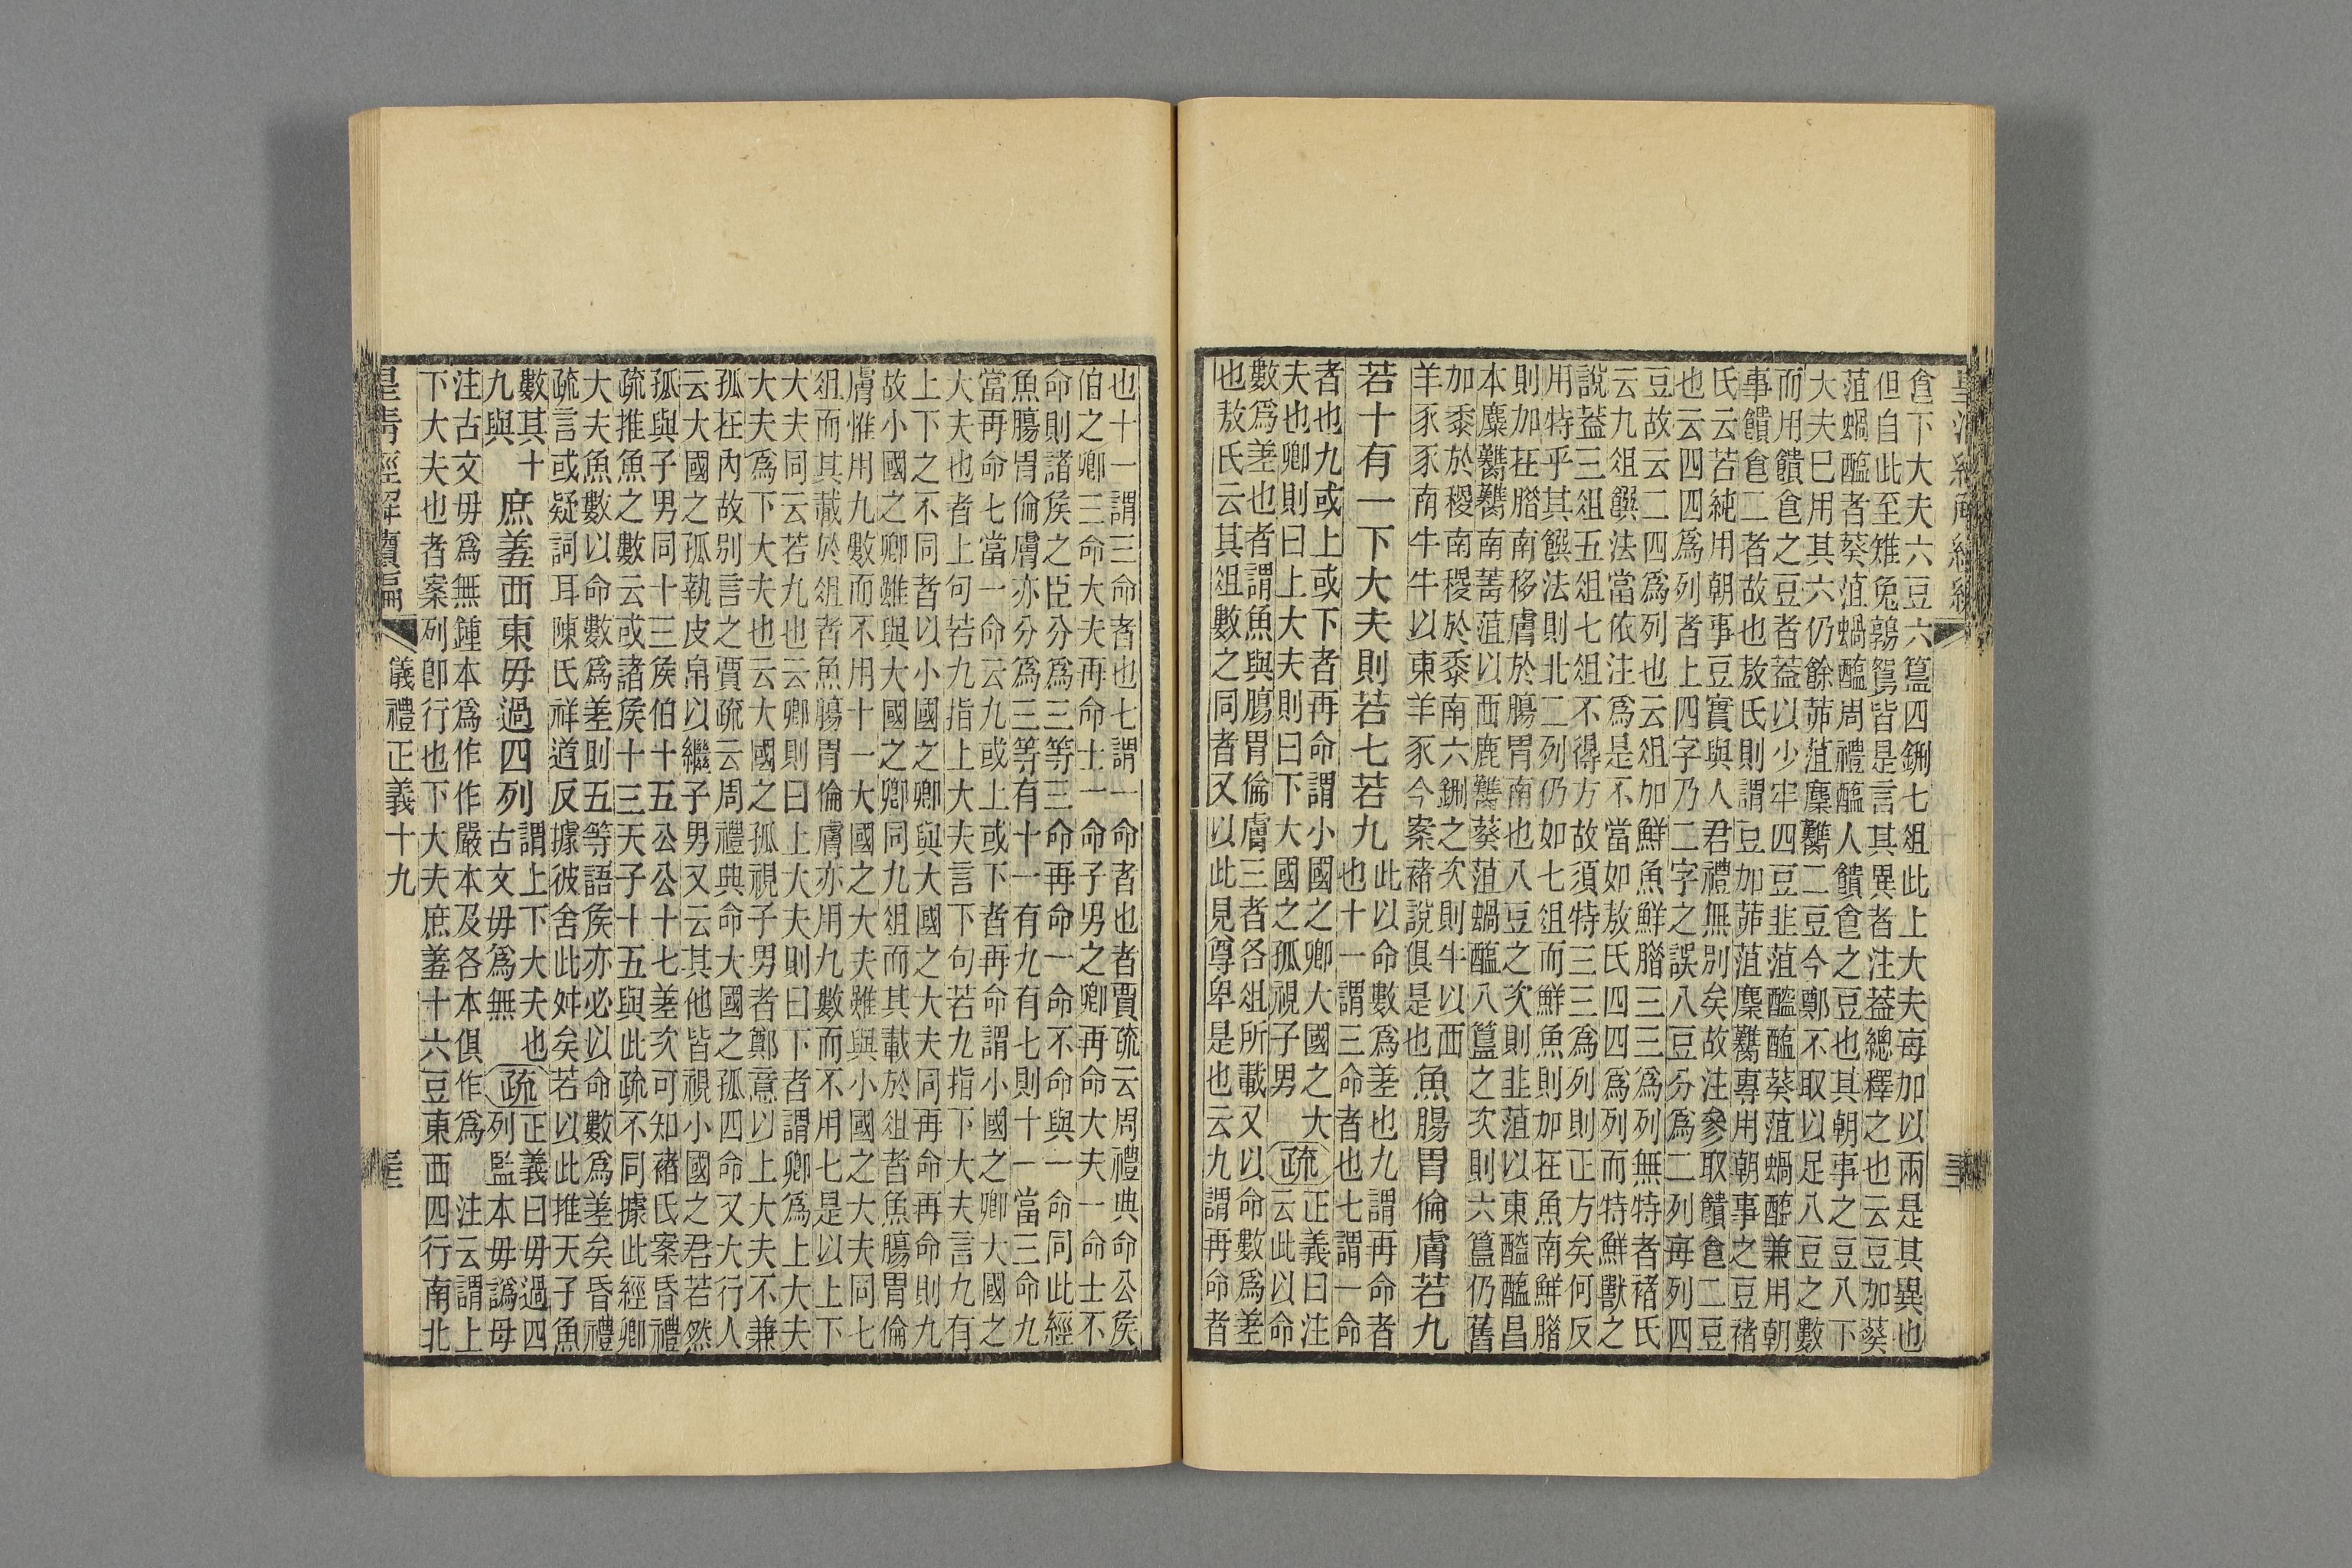 食下大夫六豆六簋四鉶七俎此上大夫每加以兩是其異也
但自此至雉兔鶉鴽皆是言其異者注蓋總釋之也云豆加葵
菹蝸醢者葵菹蝸醢周禮醢人饋食之豆也其朝事之豆八下
大夫巳用其六仍餘茆菹麋臡二豆今鄭不取以足八豆之數
而用饋食之豆者蓋以少牢四豆韭菹醓醢葵菹蝸醢兼用朝
事饋食二者故也敖氏則謂豆加茆菹麋臡專用朝事之豆褚
氏云若純用朝事豆實與人君禮無別矣故注參取饋食二豆
也云四四爲列者上四字乃二字之誤八豆分爲二列每列四
豆故云二四爲列也云俎加鮮魚鮮腊三三爲列無特者褚氏
云九俎饌法當依注爲是不當如敖氏四四爲列而特鮮獸之
說蓋三俎五俎七俎不得方故須特三三爲列則正方矣何反
用特乎其饌法則北二列仍如七俎而鮮魚則加在魚南鮮腊
則加在腊南移膚於腸胃南也八豆之次則韭菹以東醓醢昌
本麋臡臡南菁菹以西鹿臡葵菹蝸醢八簋之次則六簋仍舊
加黍於稷南稷於黍南六鉶之次則牛以西
羊豕豕南牛牛以東羊豕今案褚說俱是也
魚腸胃倫膚若九
若十有一下大夫則若七若九
此以命數爲差也九謂再命者
也十一謂三命者也七謂一命
者也九或上或下者再命謂小國之卿大國之大
夫也卿則曰上大夫則曰下大國之孤視子男
疏
正義曰注
云此以命
數爲差也者謂魚與腸胃倫膚三者各俎所載又以命數爲差
也敖氏云其俎數之同者又以此見尊卑是也云九謂再命者
也十一謂三命者也七謂一命者也者賈疏云周禮典命公侯
伯之卿三命大夫再命士一命子男之卿再命大夫一命士不
命則諸侯之臣分爲三等三命再命一命不命與一命同此經
魚腸胃倫膚亦分爲三等有十一有九有七則十一當三命九
當再命七當一命云九或上或下者再命謂小國之卿大國之
大夫也者上句若九指上大夫言下句若九指下大夫言九有
上下之不同者以小國之卿與大國之大夫同再命再命則九
故小國之卿雖與大國之卿同九俎而其載於俎者魚腸胃倫
膚惟用九數而不用十一大國之大夫雖與小國之大夫同七
俎而其載於俎者魚腸胃倫膚亦用九數而不用七是以上下
大夫同云若九也云卿則曰上大夫則曰下者謂卿爲上大夫
大夫爲下大夫也云大國之孤視子男者鄭意以上大夫不兼
孤在內故別言之賈疏云周禮典命大國之孤四命又大行人
云大國之孤執皮帛以繼子男又云其他皆視小國之君若然
孤與子男同十三侯伯十五公十七差次可知褚氏案昏禮
疏推魚之數云或諸侯十三天子十五與此疏不同據此經卿
大夫魚數以命數爲差則五等諸侯亦必以命數爲差矣昏禮
疏言或疑詞耳陳氏祥道反據彼舍此舛矣若以此推天子魚
數其十
九與
庶羞西東毋過四列
謂上下大夫也
古文毋爲無
疏
正義曰毋過四
列監本毋譌母
注古文毋爲無鍾本爲作作嚴本及各本俱作爲　注云謂上
下大夫也者案列卽行也下大夫庶羞十六豆東西四行南北
儀禮正義十九